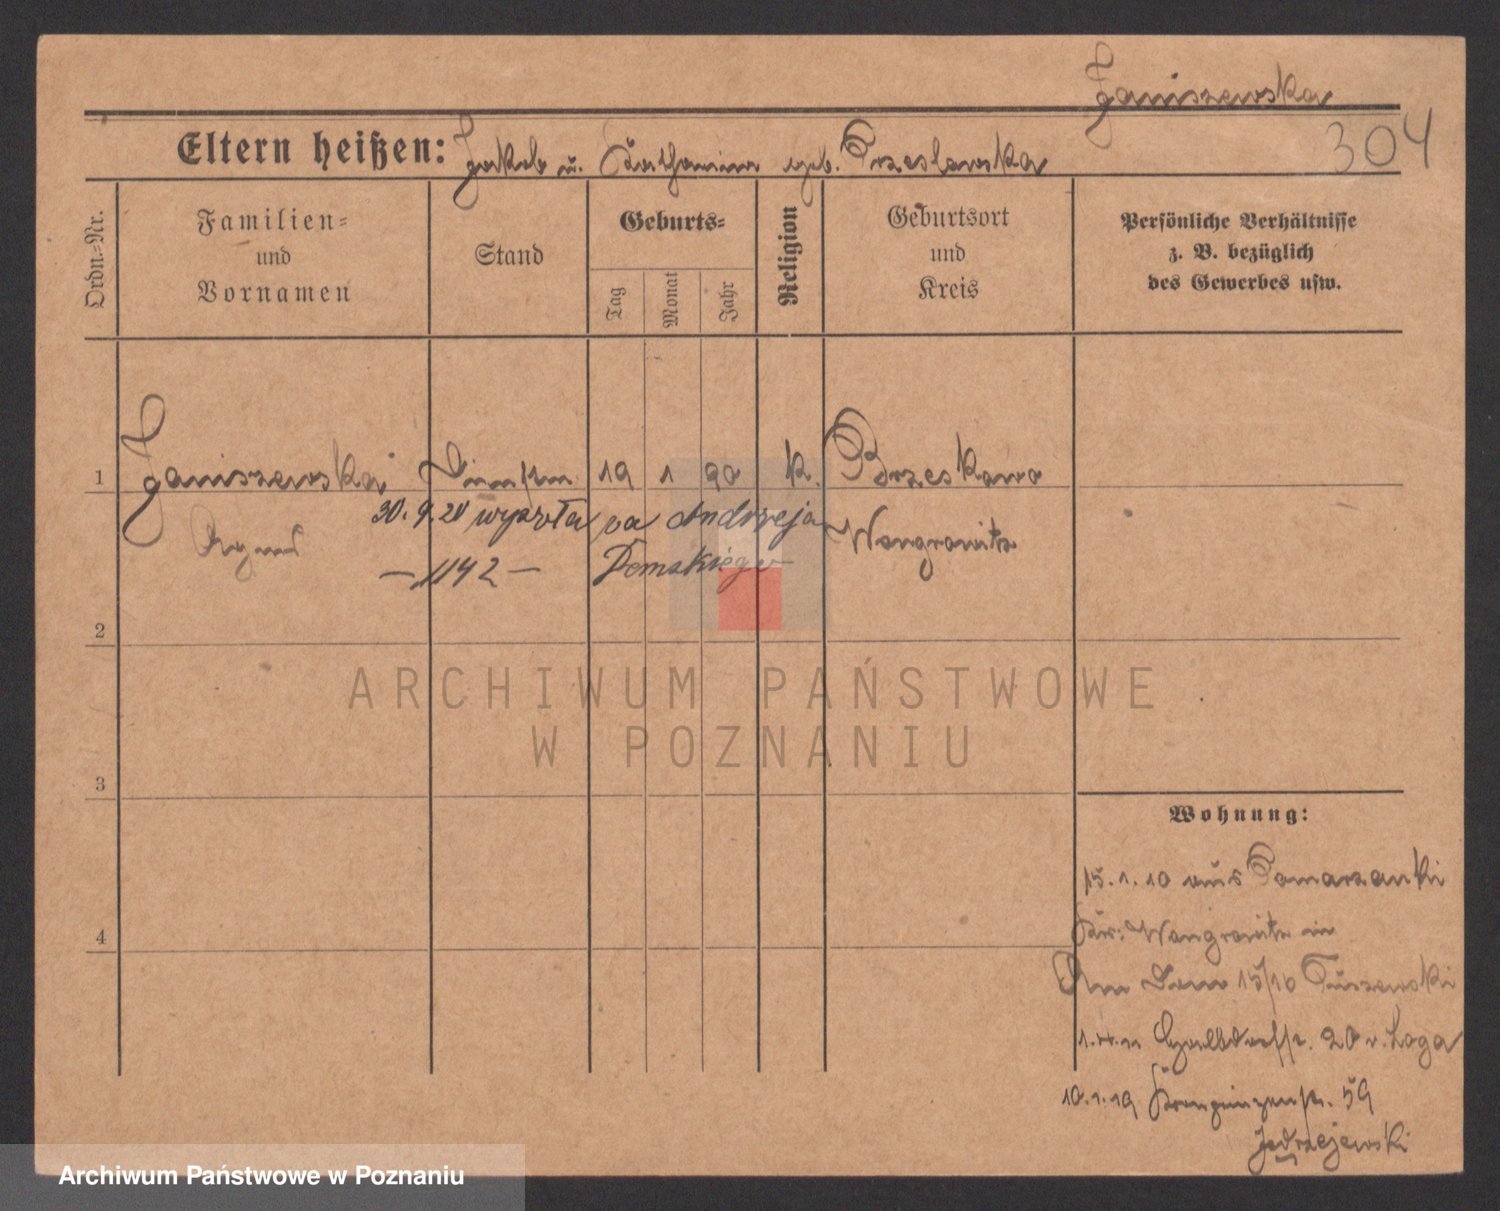 Janiszewska
304
Eltern heißen: Jakob u. Katharina geb. Przeslawska
Ordn.-Nr.
Familien-
und
Vornamen
Stand
Geburts-
Tag
Monat
Jahr
Religion
Geburtsort
und
Kreis
Persönliche Verhältnisse
z. B. bezüglich
des Gewerbes usw.
1
Janiszewska 19 1 90 k.
30. 9. 20 wyszła za Andrzeja
Wongrowitz
Agnes
— 1142 —
2
ARCHIWUM PAŃSTWOWE
W POZNANIU
3
Wohnung:
15. 1. 10 aus Pomarzanki
Kr: Wongrowitz in
Am Dom 15/16 Tuszewski
20
10. 1. 19 Kronprinzenstr. 59
Jedrzejewski
4
Archiwum Państwowe w Poznaniu